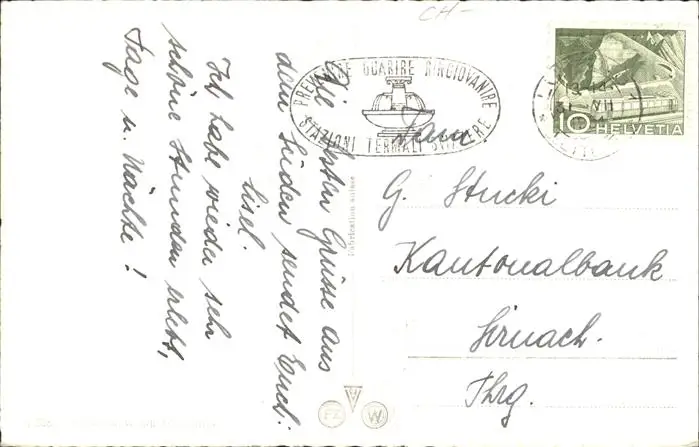 CH-
PREVENIRE GUARIRE RINGIOVANIRE
STAZIONI TERMALI SVIZZERE
31. VII
10 HELVETIA
Die besten Grüsse aus
dem Süden sendet Euch:
Lisel.
Ich habe wieder sehr
schöne Stunden erlebt,
Tage u. Nächte!
Fam.
G. Stucki
Kantonalbank
Sirnach.
Thrg.
Fabrication suisse
FZ
W